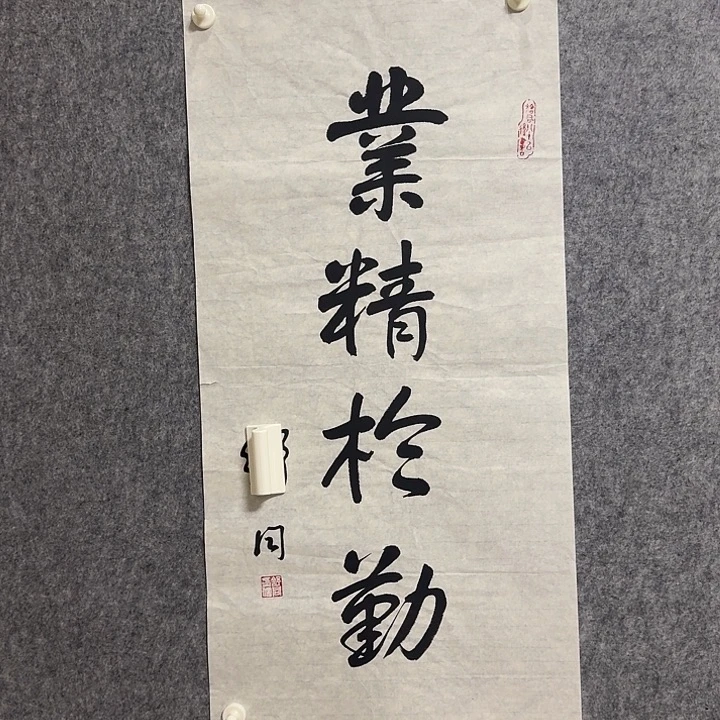 業精於勤
同